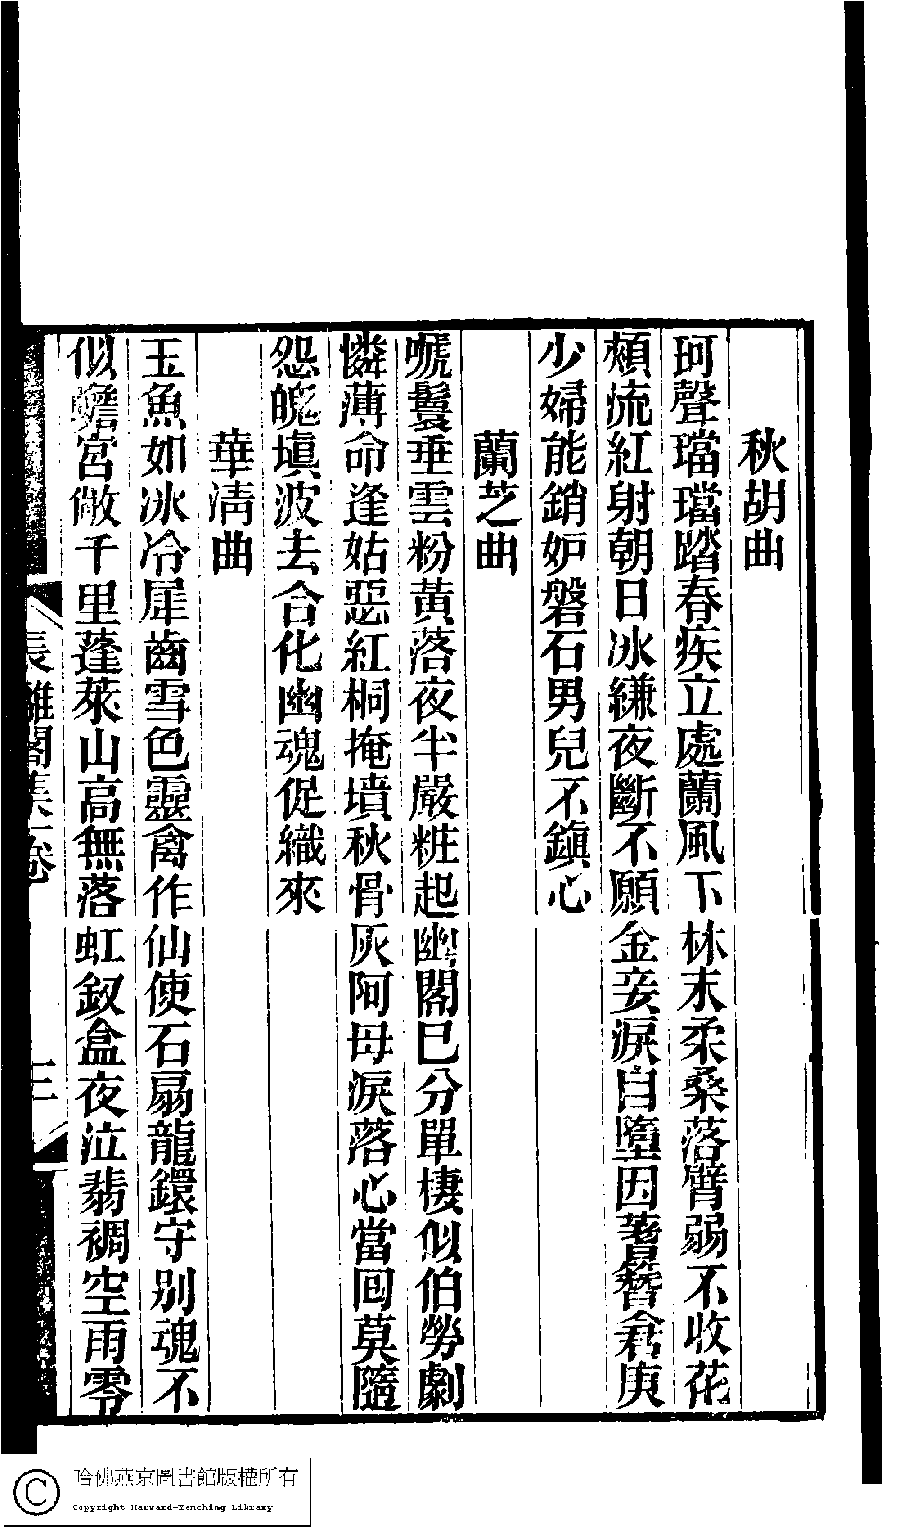 秋胡曲
珂聲璫璫踏春疾立處蘭風下林末柔桑落臂弱不收花
頰流紅射朝日冰縑夜斷不願金妾淚自墮因蓍簪君庚
少婦能銷妒磐石男兒不鎮心
蘭芝曲
嗁鬟垂雲粉黃落夜半嚴粧起幽閣巳分單棲似伯勞劇
憐薄命逢姑惡紅桐掩墳秋骨灰阿母淚落心當回莫隨
怨魄塡波去合化幽魂促織來
華淸曲
玉魚如冰冷犀齒雪色靈禽作仙使石扇龍鐶守別魂不
似蟾宮敞千里蓬萊山高無落虹釵盒夜泣翡裯空雨零
長離閣集一卷
三
哈佛燕京圖書館版權所有
Copyright Harvard-Yenching Library